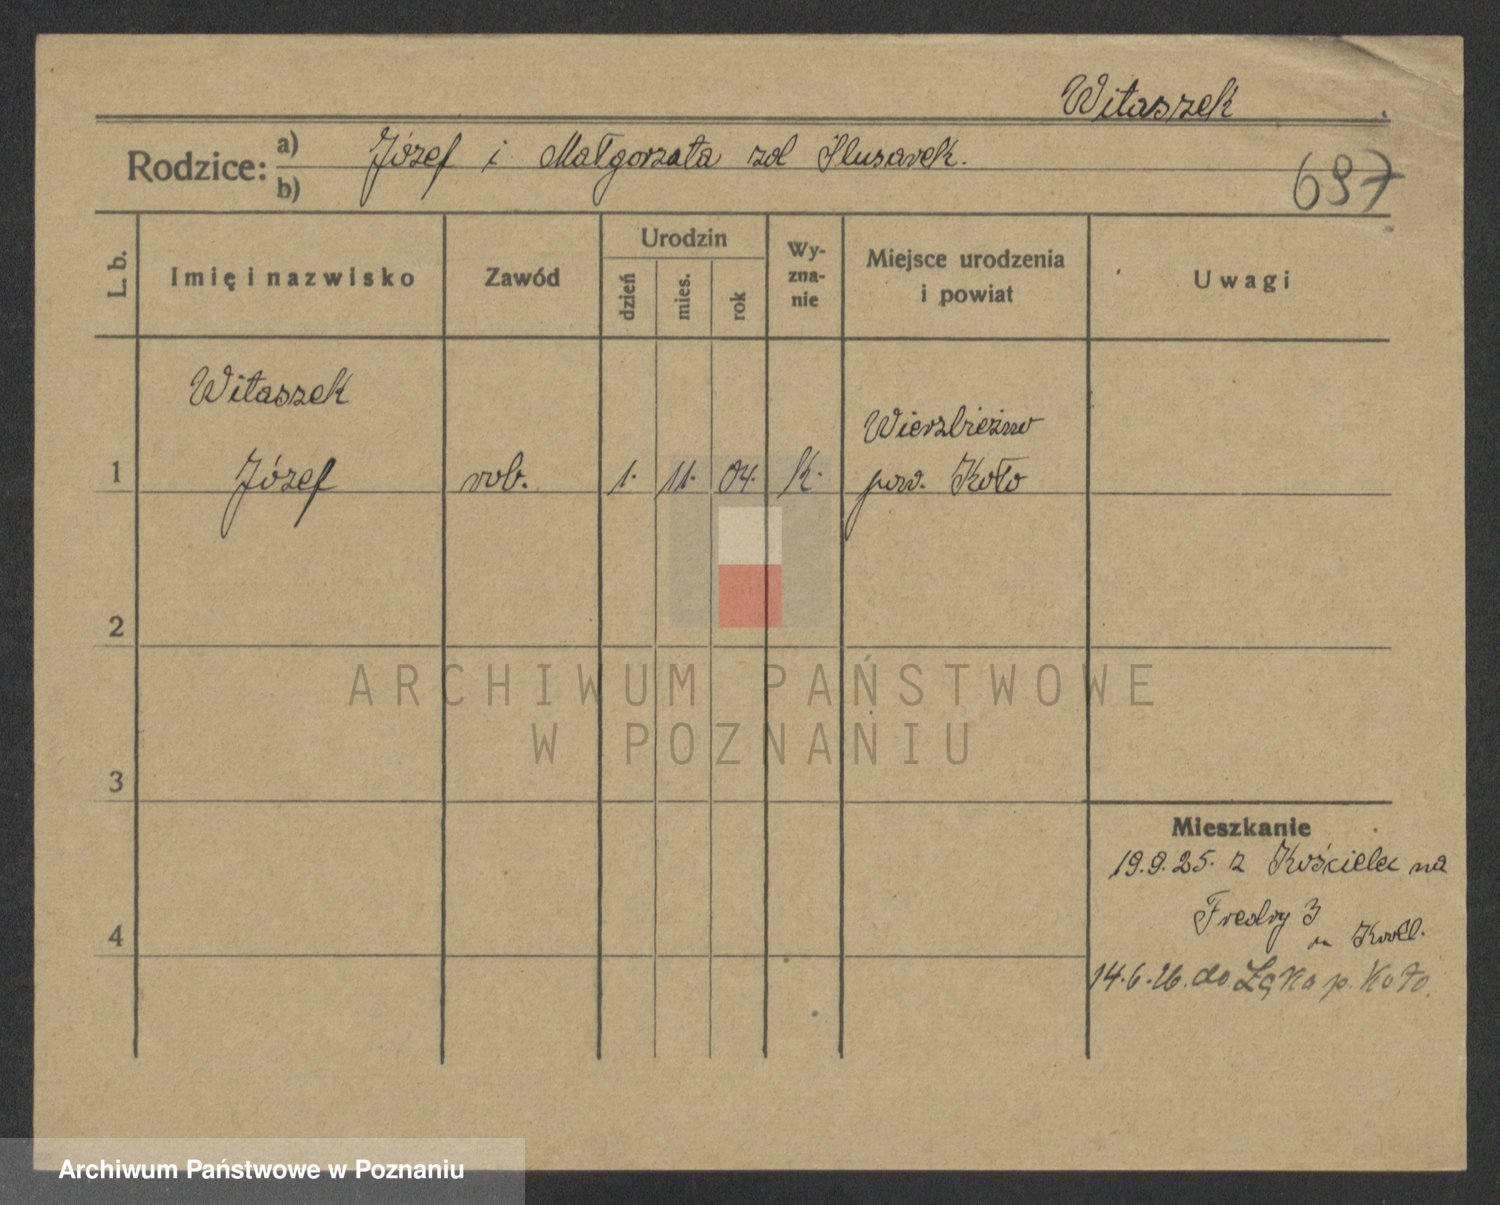 Witaszek
Rodzice: a) Józef i Małgorzata zd Slusarek.
b)
697
L. b.
Imię i nazwisko
Zawód
Urodzin
dzień
mies.
rok
Wy-
zna-
nie
Miejsce urodzenia
i powiat
Uwagi
Witaszek
Wierzbieżno
1 Józef rob. 1. 11. 04. K. pow. Koło
2
3
4
Mieszkanie
19.9.25. z Kościelec na
Fredry 3
14.6.26. do Łąka p. Koło.
ARCHIWUM PAŃSTWOWE
W POZNANIU
Archiwum Państwowe w Poznaniu